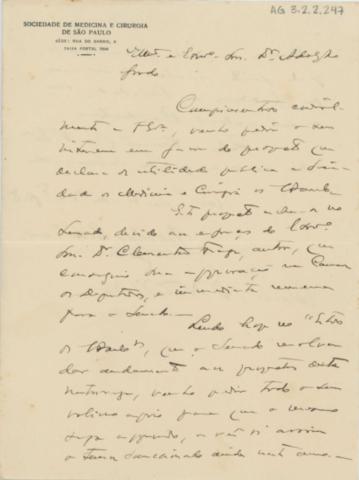 AG 3.2.2.247
SOCIEDADE DE MEDICINA E CIRURGIA
DE SÃO PAULO
SÉDE: RUA DO CARMO, 6
CAIXA POSTAL 1566
Illmo. e Exmo. Snr. Dr. Adolpho
Gordo.
Cumprimentando cordial-
mente a V. Excia., venho pedir o seu
em favor do projecto que
declara de utilidade publica a Socie-
dade de Medicina e Cirurgia de S. Paulo.
Este projecto acha-se no
Senado, devido aos esforços do Exmo.
Snr. Dr. Clementino Fraga, autor, que
conseguiu sua approvação na Camara
dos Deputados, e immediata remessa
para o Senado.
Lendo hoje no "Estado
de S. Paulo", que o Senado resolveu
dar andamento aos projectos desta
natureza, venho pedir todo o seu
valioso apoio para que o mesmo
seja approvado, e
sanccionado ainda neste anno.